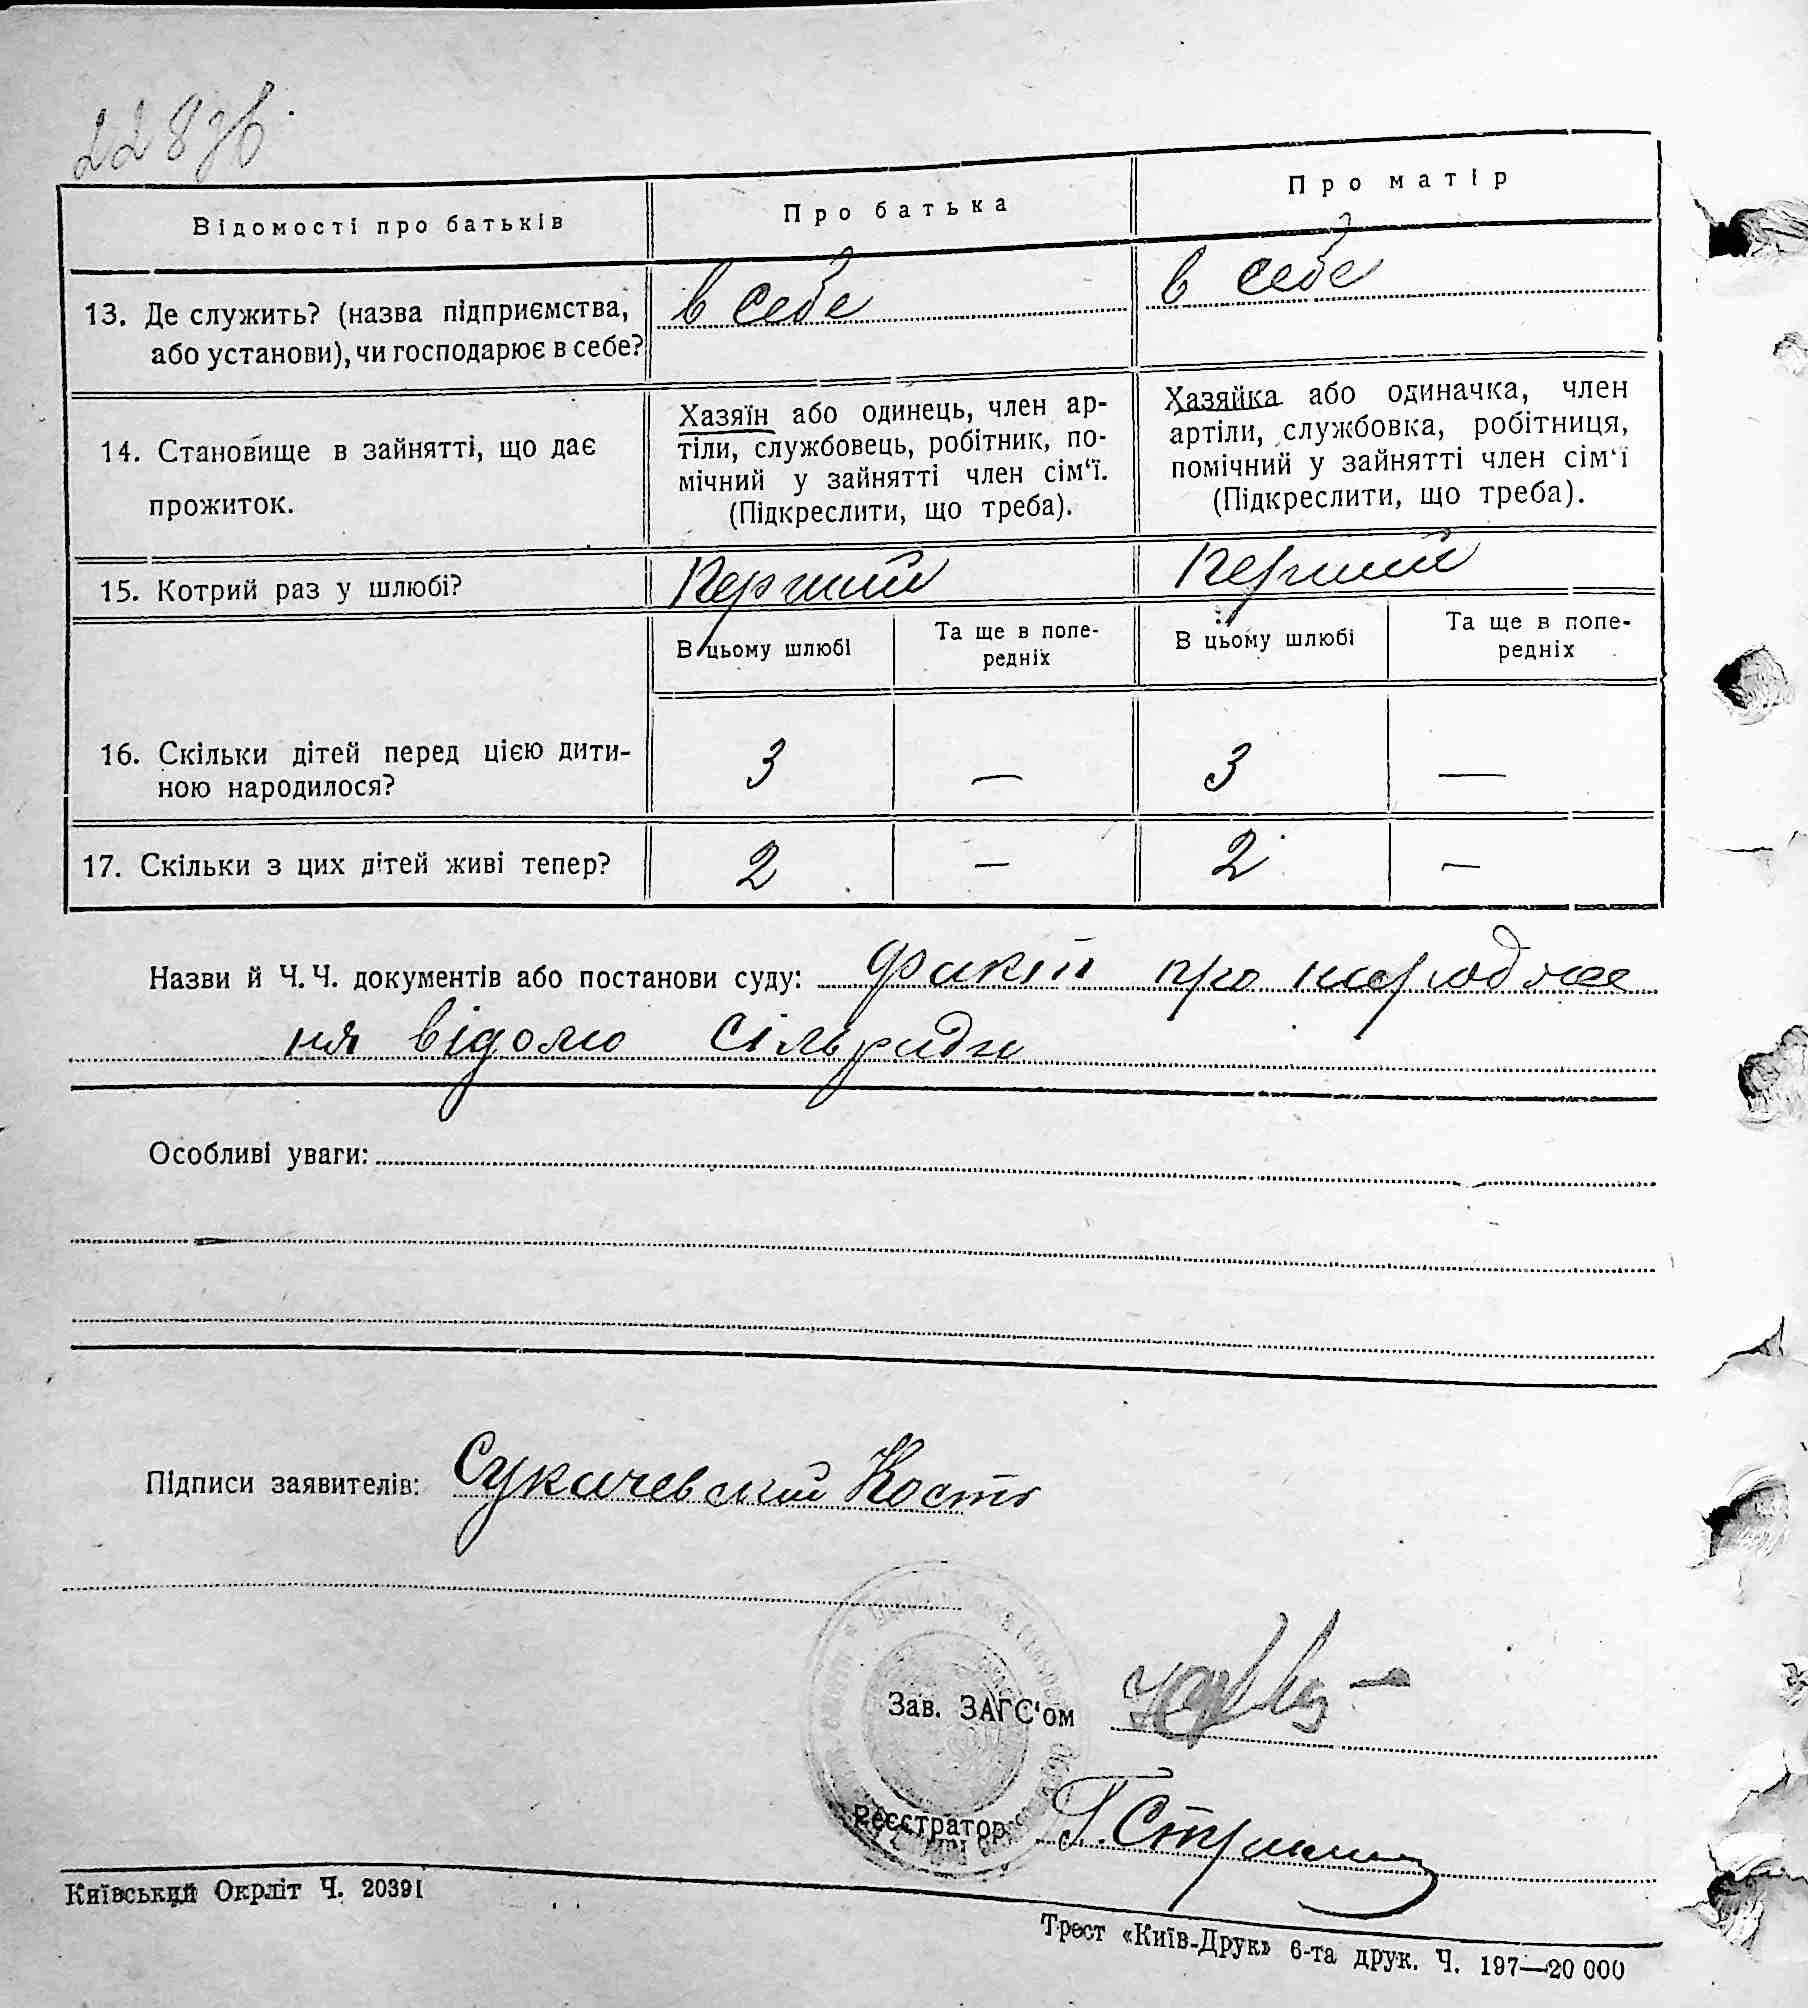 228 зв.
Відомості про батьків
Про батька
Про матір
13. Де служить? (назва підприємства,
або установи), чи господарює в себе?
в себе
в себе
14. Становище в зайнятті, що дає
прожиток.
Хазяїн або одинець, член ар-
тіли, службовець, робітник, по-
мічний у зайнятті член сім‘ї.
(Підкреслити, що треба).
Хазяйка або одиначка, член
артіли, службовка, робітниця,
помічний у зайнятті член сім‘ї
(Підкреслити, що треба).
15. Котрий раз у шлюбі?
Перший
Перший
В цьому шлюбі
Та ще в попе-
редніх
В цьому шлюбі
Та ще в попе-
редніх
16. Скільки дітей перед цією дити-
ною народилося?
3
—
3
—
17. Скільки з цих дітей живі тепер?
2
—
2
—
Назви й Ч. Ч. документів або постанови суду: факт про народжен
ня відомо сільради
Особливі уваги:
Підписи заявителів: Сукачевский Кость
Зав. ЗАГС‘ом
Реєстратор
Київський Окрліт Ч. 20391
Трест «Київ-Друк» 6-та друк. Ч. 197—20 000